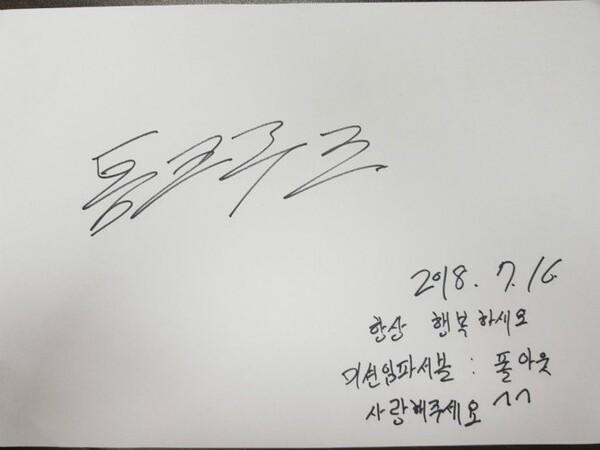 톰크루즈
2018. 7. 16
항상 행복하세요
미션임파서블 : 폴아웃
사랑해주세요 ^^